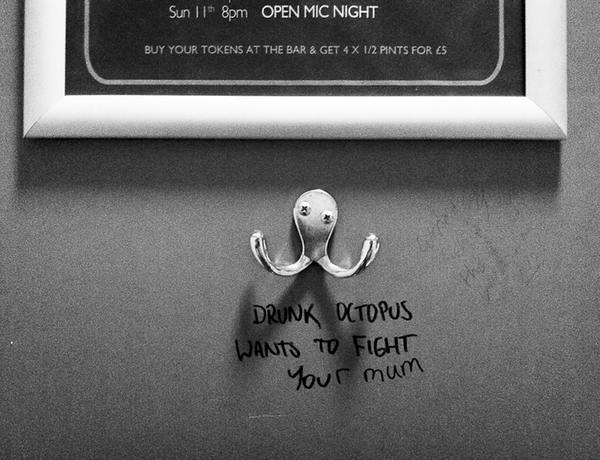 Sun 11th 8pm OPEN MIC NIGHT
BUY YOUR TOKENS AT THE BAR & GET 4 X 1/2 PINTS FOR £5
DRUNK OCTOPUS
WANTS TO FIGHT
YOUR mum